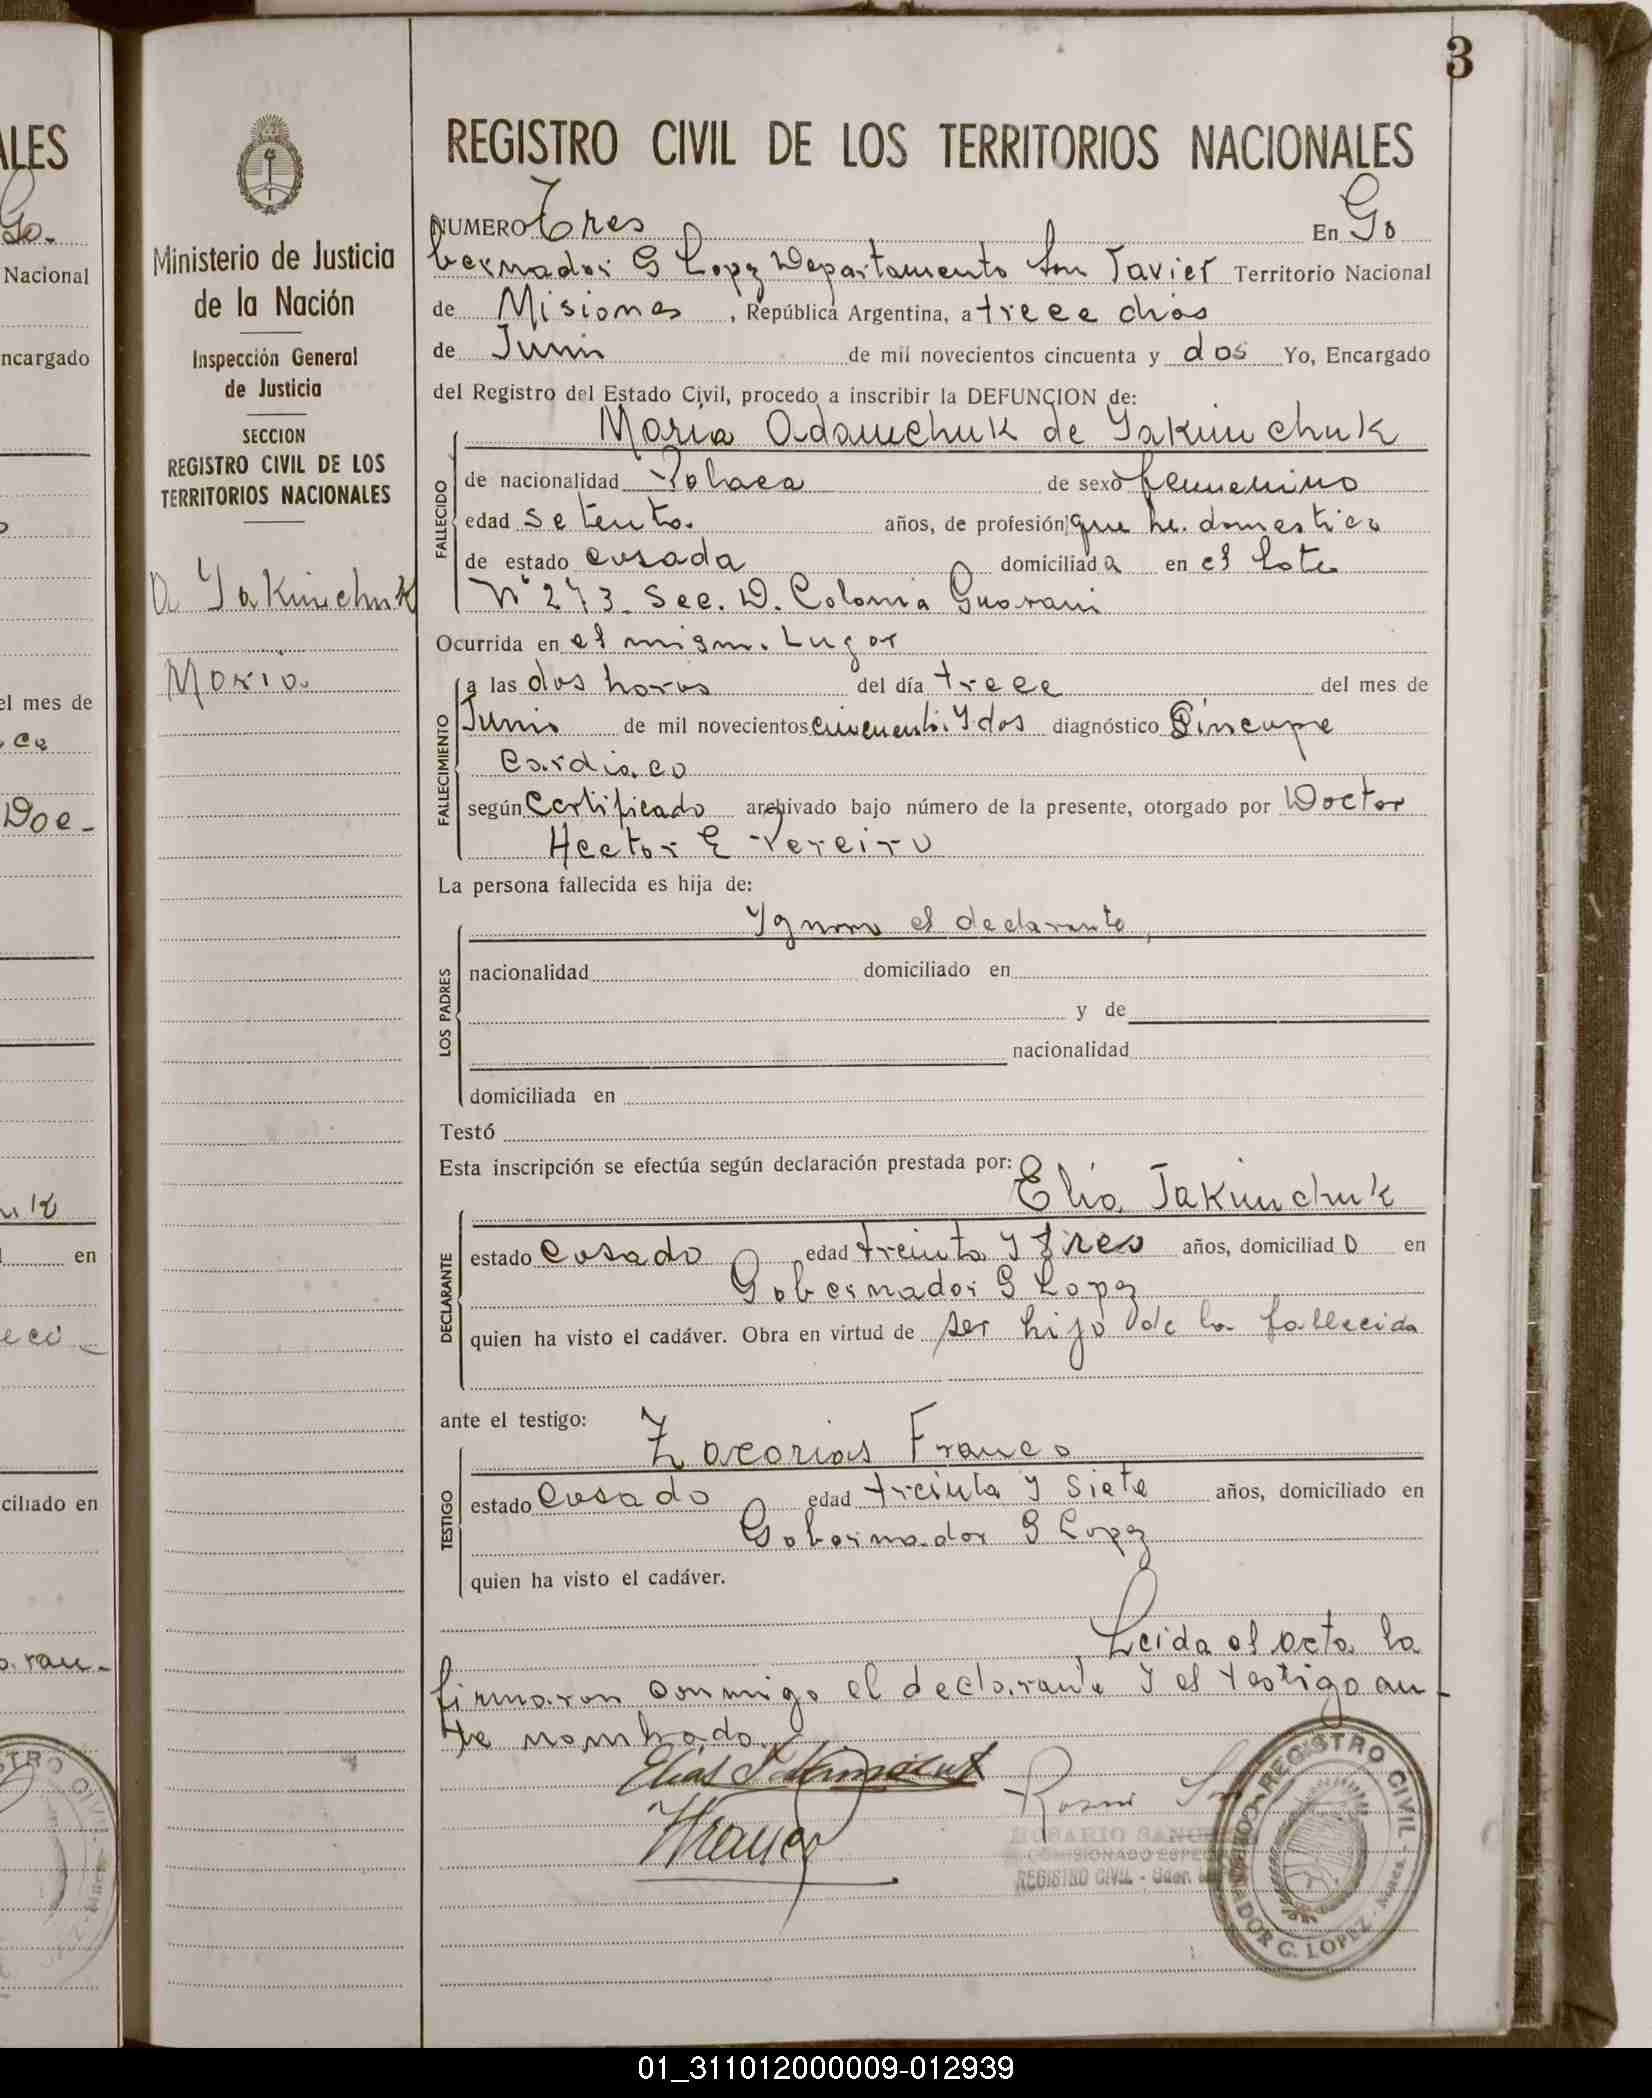 3
ALES
Go.
Nacional
ncargado
el mes de
Doc-
en
ciliado en
Ministerio de Justicia
de la Nación
Inspección General
de Justicia
SECCION
REGISTRO CIVIL DE LOS
TERRITORIOS NACIONALES
Yakimchuk
Maria
REGISTRO CIVIL DE LOS TERRITORIOS NACIONALES
NUMERO Tres En Go
bernador G Lopez Departamento San Javier Territorio Nacional
de Misiones, República Argentina, a trece dias
de Junio de mil novecientos cincuenta y dos Yo, Encargado
del Registro del Estado Civil, procedo a inscribir la DEFUNCION de:
Maria Adamchuk de Yakimchuk
FALLECIDO
de nacionalidad Polaca de sexo femenino
edad setenta años, de profesión que he. domestico
de estado casada domiciliada en el Lote
Nº 273. Sec. D. Colonia Guarani
Ocurrida en el mismo Lugar
FALLECIMIENTO
a las dos horas del día trece del mes de
Junio de mil novecientos cincuenta y dos diagnóstico Sincope
Cardiaco
según Certificado archivado bajo número de la presente, otorgado por Doctor
Hector E Pereira
La persona fallecida es hija de:
LOS PADRES
Ygnora el declarante,
nacionalidad domiciliado en
y de
nacionalidad
domiciliada en
Testó
Esta inscripción se efectúa según declaración prestada por:
Elia Jakimchuk
DECLARANTE
estado Casado edad treinta y tres años, domiciliado en
Gobernador G Lopez
quien ha visto el cadáver. Obra en virtud de ser hijo de la fallecida
ante el testigo:
Zacarias Franco
TESTIGO
estado Casado edad treinta y siete años, domiciliado en
Gobernador G Lopez
quien ha visto el cadáver.
Leida el acta la
firmaron conmigo el declarante y el testigo an-
te nombrado.
Elias
ROSARIO
COMISIONADO
REGISTRO CIVIL - Gdor.
REGISTRO CIVIL
DOR G. LOPEZ
01_311012000009-012939